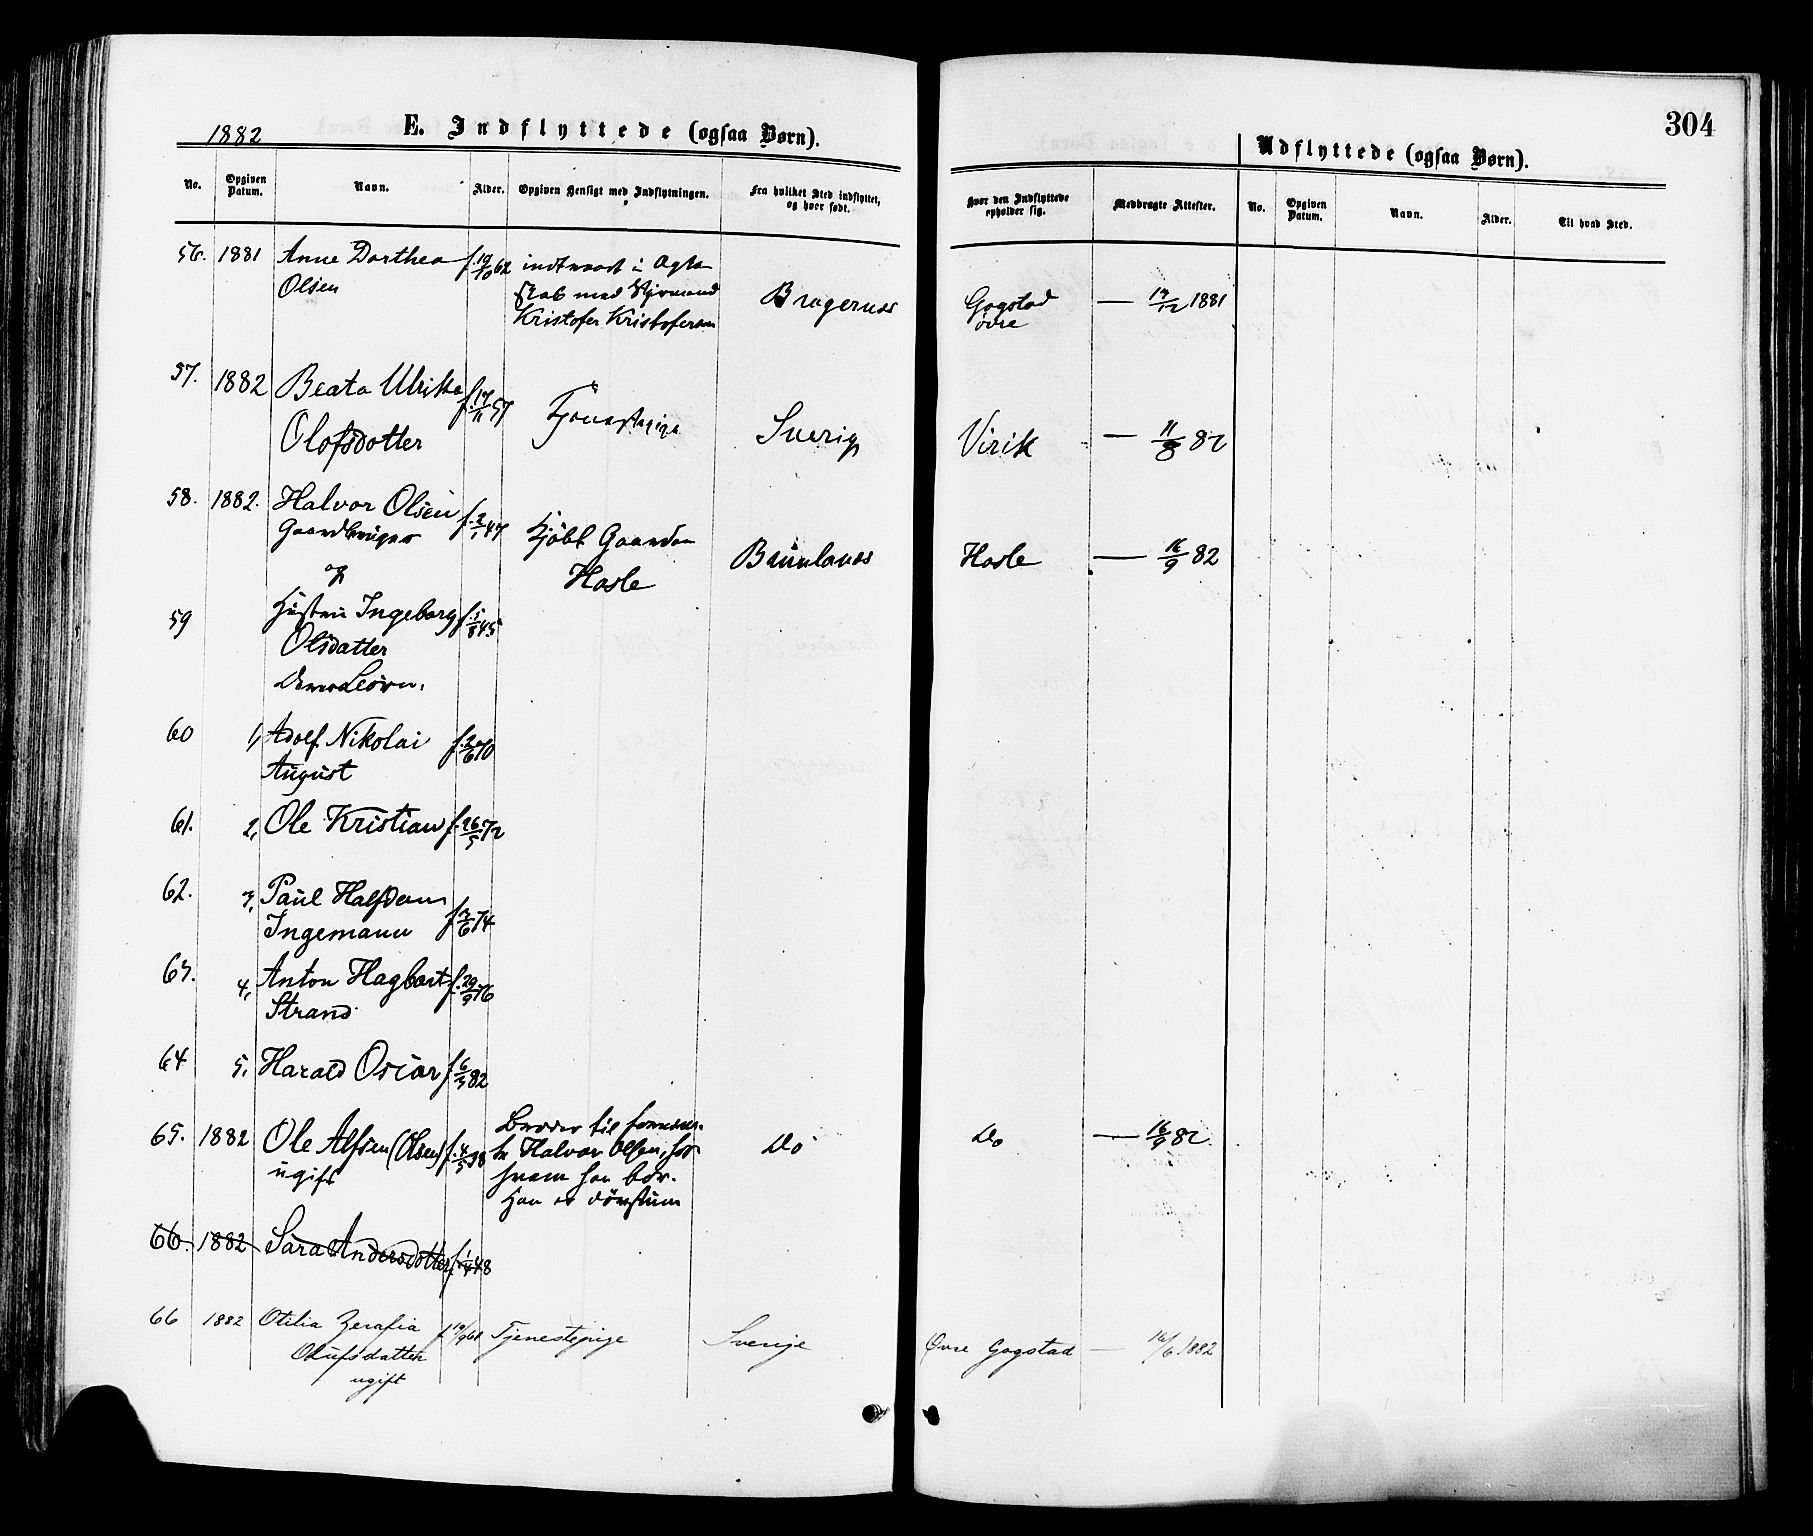 1882
E. Indflyttede (ogsaa Børn).
No.
Opgiven Datum.
Navn.
Alder.
Opgiven Hensigt med Indflytningen.
Fra hvilket Sted indflyttet, og hvor født.
Hvor den Indflyttede opholder sig.
Medbragte Attester.
304
Udflyttede (ogsaa Børn).
No.
Opgiven Datum.
Navn.
Alder.
Til hvad Sted.
56. 1881 Anne Dorthea f. 62 i Ægte-
Olsen skab med Styrmand Bragernes Gogstad — 1881
Kristofer Kristofersen øvre
57. 1882 Beata Ulrikka f. 17/11 57
Olofsdotter Tjenestepige Sverig Virik — 11/8 82
58. 1882. Halvor Olsen f. 2/1 47
Gaardbruger Kjøbt Gaarden Brunlanes Hasle — 16/9 82
og Hasle
59 Hustru Ingeborg f. 1/8 45
Olsdatter
Deres Børn.
60 1, Adolf Nikolai f. 70
August
61. 2, Ole Kristian f. 26/5 72
62. 3, Paul Halfdan
Ingemann f. 3/6 74
63. 4, Anton Hagbart f. 29/9 76
Strand
64 5, Harald Oscar f. 6/3 82
65. 1882 Ole Alfsen (Olsen) f. 4/5 38 Broder til fornævn-
ugift te Halvor Olsen, hos Do Do — 16/9 82.
hvem han bor.
Han er døvstum
66. 1882 Sara Andersdotter f. 48
66 1882 Otilia Zerafia Tjenestepige Sverige Øvre Gogstad — 16/6 1882
Olufsdatter
ugift